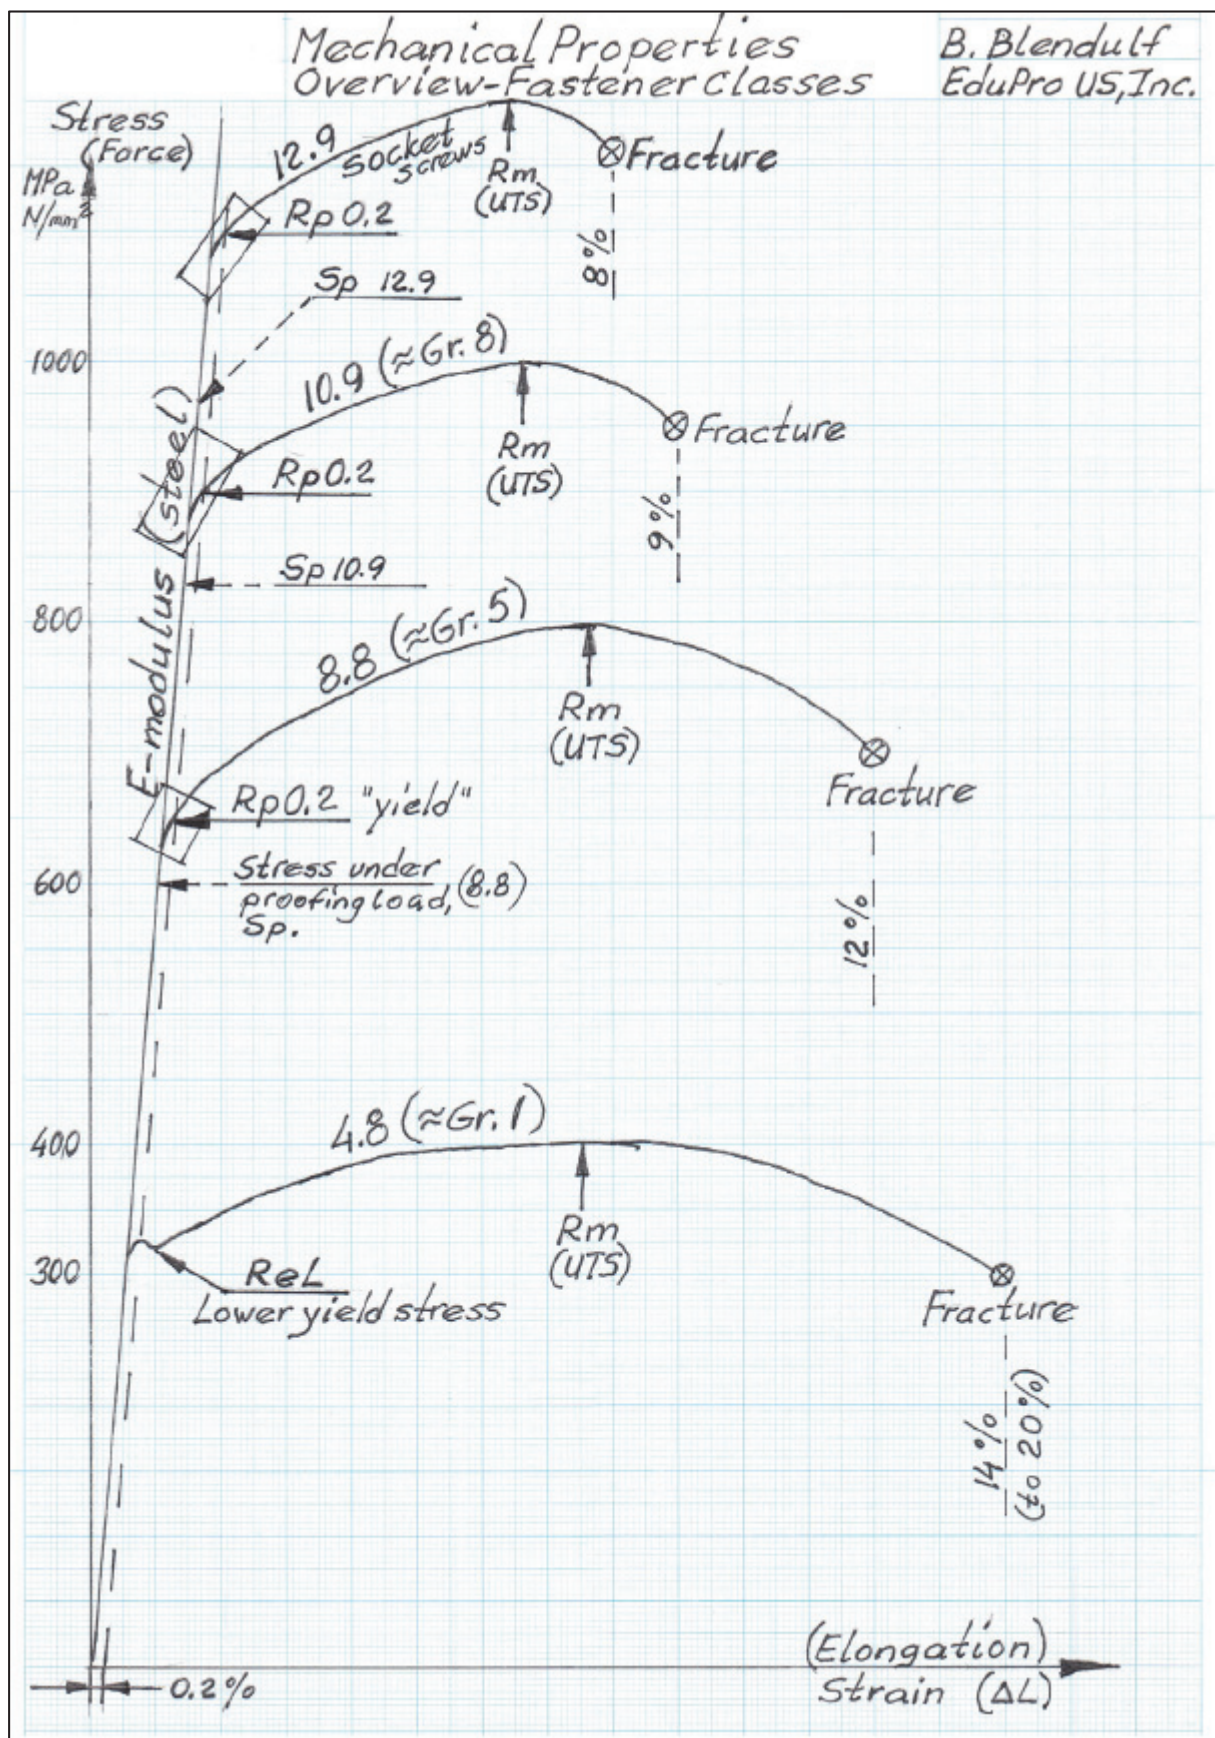 Mechanical Properties
Overview-Fastener Classes
B. Blendulf
EduPro US, Inc.
Stress
(Force)
MPa
N/mm²
12.9
Socket
screws
Rm
(UTS)
Fracture
8%
Rp 0.2
Sp 12.9
1000
10.9 (≈Gr. 8)
Rm
(UTS)
Fracture
9%
Rp 0.2
Sp 10.9
E-modulus (steel)
800
8.8 (≈Gr. 5)
Rm
(UTS)
Fracture
12%
Rp 0.2 "yield"
600
Stress under
proofing load, (8.8)
Sp.
400
4.8 (≈Gr. 1)
Rm
(UTS)
300
ReL
Lower yield stress
Fracture
14%
(to 20%)
(Elongation)
Strain (ΔL)
0.2%